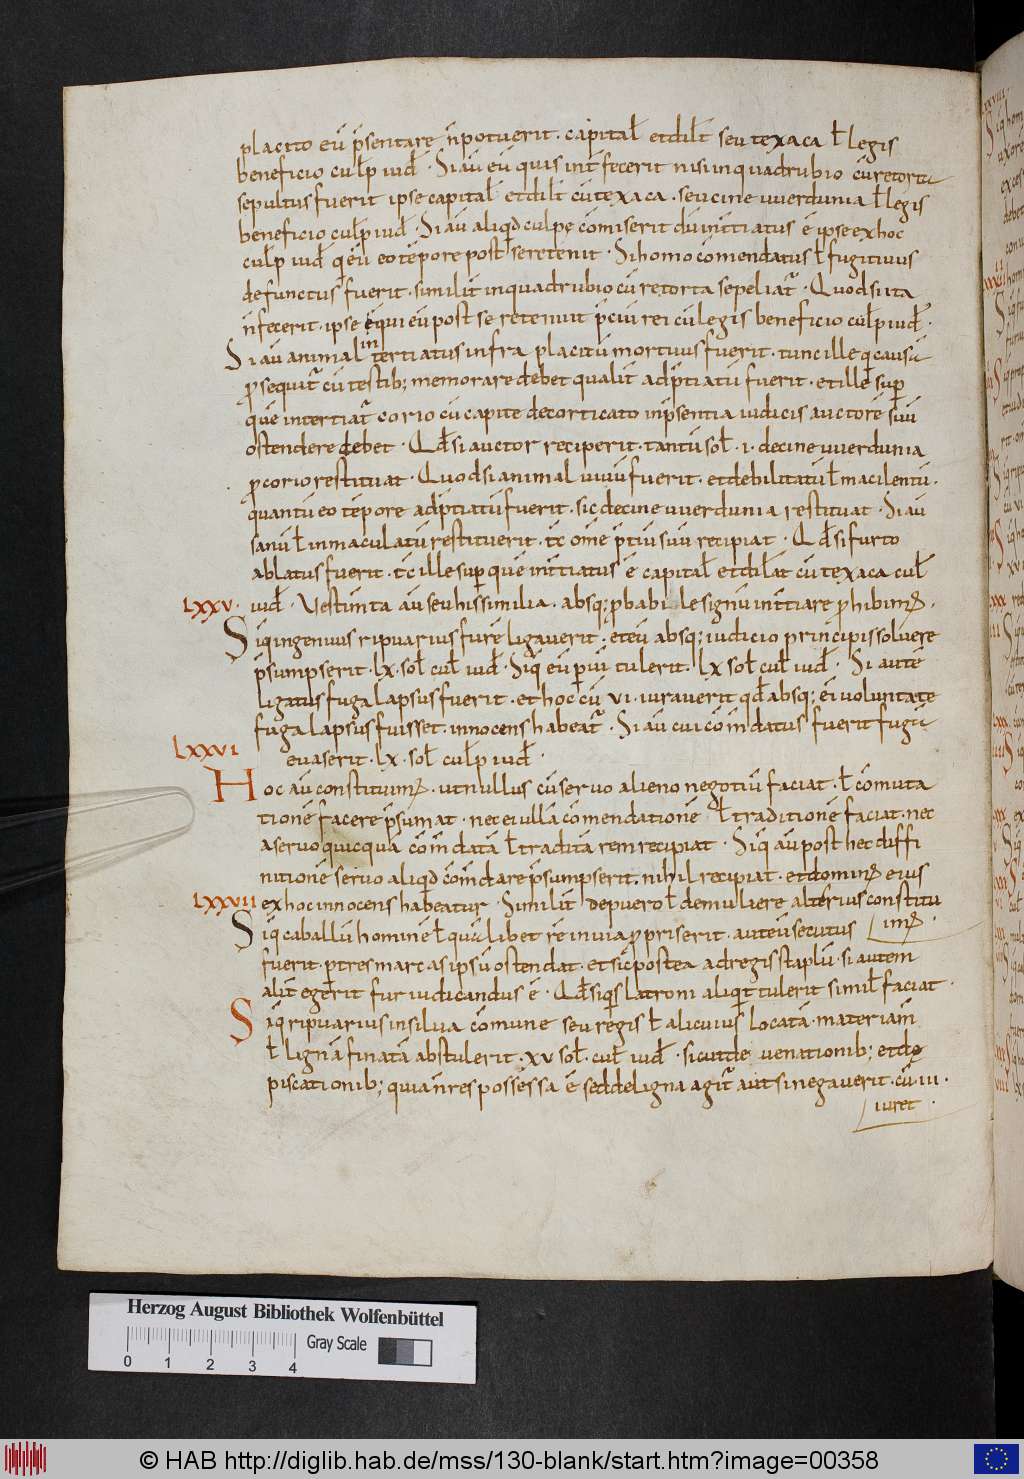 placito eū p̄sentare n̄ potuerit · capital̄ et dil̄t seu texaca ł legis
beneficio culp̄ iud̄ · Si au eū quis int̄fecerit nisi in quadrubio cū retorta
sepultus fuerit ipse capital̄ et dil̄t cū texaca · seu cine uuerdunia ł legis
beneficio culp̄ iud̄ · Si au aliqd culpę cōmiserit dū int̄tiatus ē ipse ex hoc
culp̄ iud̄ q̄ eū eo tēpore post se retenit · Si homo cōmendatus ł fugitiuus
defunctus fuerit · similit̄ in quadrubio cū retorta sepeliat̄ · Quod si ita
n̄ fecerit · ipse qui eū post se retenuit p̄ciū rei cū legis beneficio culp̄ iud̄ ·
Si au animal intertiatus infra placitū mortuus fuerit · tunc ille q̄ causā
ꝓsequit̄ cū testib; memorare debet qualit̄ adp̄tiatū fuerit · et ille sup̄
quē intertiat̄ corio cū capite decorticato in p̄sentia iudicis auctorē suū
ostendere debet · Qd̄ si auctor reciperit · tantū sol̄ · i · de cine uuerdunia
ꝓ corio restituat · Quod si animal uiuū fuerit · et debilitatū ł macilentū ·
quantū eo tēpore adp̄tiatū fuerit · sic de cine uuerdunia restituat · Si au
sanū ł inmaculatū restituerit · tc̄ om̄e p̄tiū suū recipiat · Qd̄ si furto
ablatus fuerit · tc̄ ille sup̄ quē int̄tiatus ē capital̄ et dilat̄ cū texaca cul̄
LXXV · iud̄ · Vestim̄ta au seu his similia · absq; ꝓbabile signū int̄tiare ꝓhibim̄ ·
Siq̄ ingenuus ripuarius furē ligauerit · et eū absq; iudicio principis soluere
p̄sumpserit · lx · sol̄ cul̄ iud̄ · Siq̄ eū p̄ uī tulerit · lx sol̄ cul̄ iud̄ · Si autē
ligatus fuga lapsus fuerit · et hoc cū vi · iurauerit qd̄ absq; ei uoluntate
fuga lapsus fuisset · innocens habeat̄ · Si au cui cōm̄datus fuerit fugiē
LXXVI euaserit · lx · sol̄ culp̄ iud̄ ·
Hoc au constituim̄ · ut nullus cū seruo alieno negotiū faciat · ł cōmuta
tionē facere p̄sumat · nec ei ullā cōmendationē ł traditionē faciat · nec
a seruo quicquā cōm̄datā ł traditā rem recipiat · Siq̄ au post hec diffi
nitionē seruo aliqd̄ cōm̄dare p̄sumpserit · nihil recipiat · et domin̄ eius
LXXVII ex hoc innocens habeatur · Similit̄ de puero ł de muliere alterius constitu
Siq̄ caballū hominē ł quālibet rē in uia ꝓpriserit · aut eū secutus im̄ ·
fuerit · p̄ tres marcas ipsū ostendat · et sic postea ad regis staplū · si autem
alit̄ egerit fur iudicandus ē · Qd̄ siq̄s latroni aliq̄t tulerit simil̄ faciat ·
Siq̄ ripuarius in silua cōmune seu regis ł alicuius locatā · materiam̄
ł lignā finatā abstulerit · xv sol̄ · cul̄ iud̄ · sicut de uenationib; et de
piscationib; quia n̄ res possessa ē sed de ligna agit̄ aut si negauerit · cū iii ·
iuret ·
Herzog August Bibliothek Wolfenbüttel
Gray Scale
0 1 2 3 4
© HAB http://diglib.hab.de/mss/130-blank/start.htm?image=00358